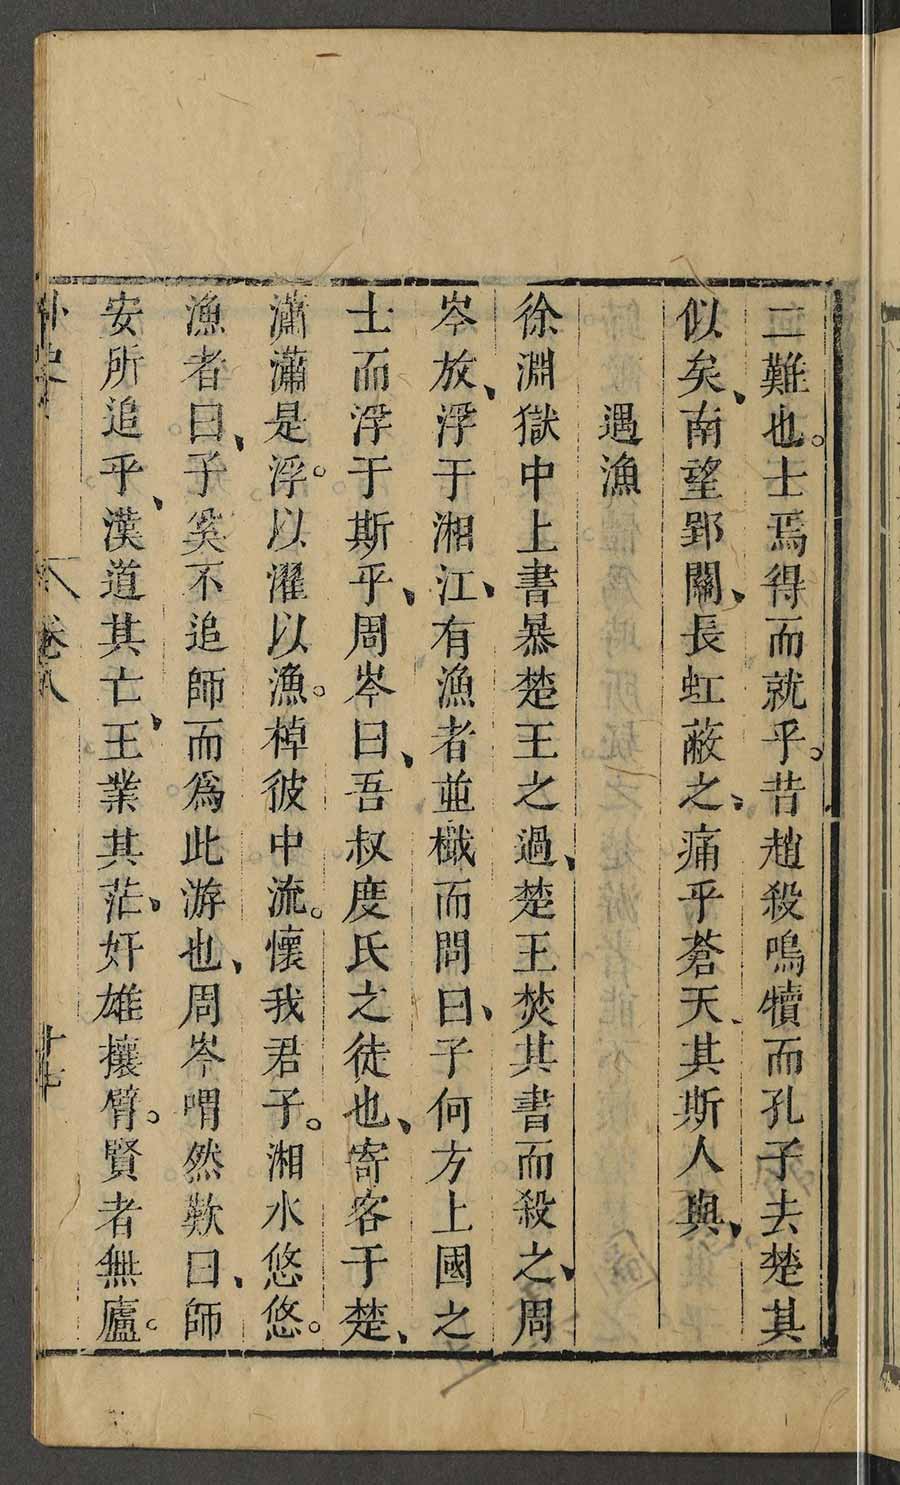 二難也。士焉得而就乎。昔趙殺鳴犢而孔子去楚其
似矣、南望郢關、長虹蔽之、痛乎蒼天、其斯人與、
遇漁
徐淵獄中上書暴楚王之過、楚王焚其書而殺之、周
岑放、浮于湘江、有漁者並檝而問曰、子何方上國之
士而浮于斯乎、周岑曰、吾叔度氏之徒也、寄客于楚、
瀟瀟是浮。以濯以漁。棹彼中流。懷我君子。湘水悠悠。
漁者曰、子奚不追師而爲此游也、周岑喟然歎曰、師
安所追乎、漢道其亡、王業其茫、奸雄攘臂。賢者無廬。
外史
卷八
十七